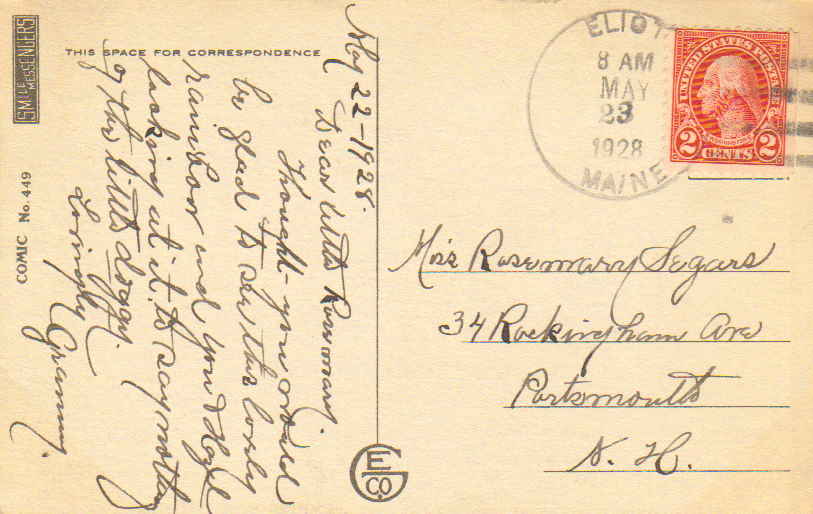 SMILE MESSENGERS
THIS SPACE FOR CORRESPONDENCE
COMIC No. 449
May 22-1928.
Dear little Rosemary.
Thought you would
be glad to see this lovely
rainbow and you &
looking at it to say nothing
of this little doggy.
Lovingly Grammy.
E Co.
ELIOT
8 AM
MAY
23
1928
MAINE
UNITED STATES POSTAGE
WASHINGTON
2 CENTS 2
Miss Rosemary Segars
34 Rockingham Ave
Portsmouth
N. H.